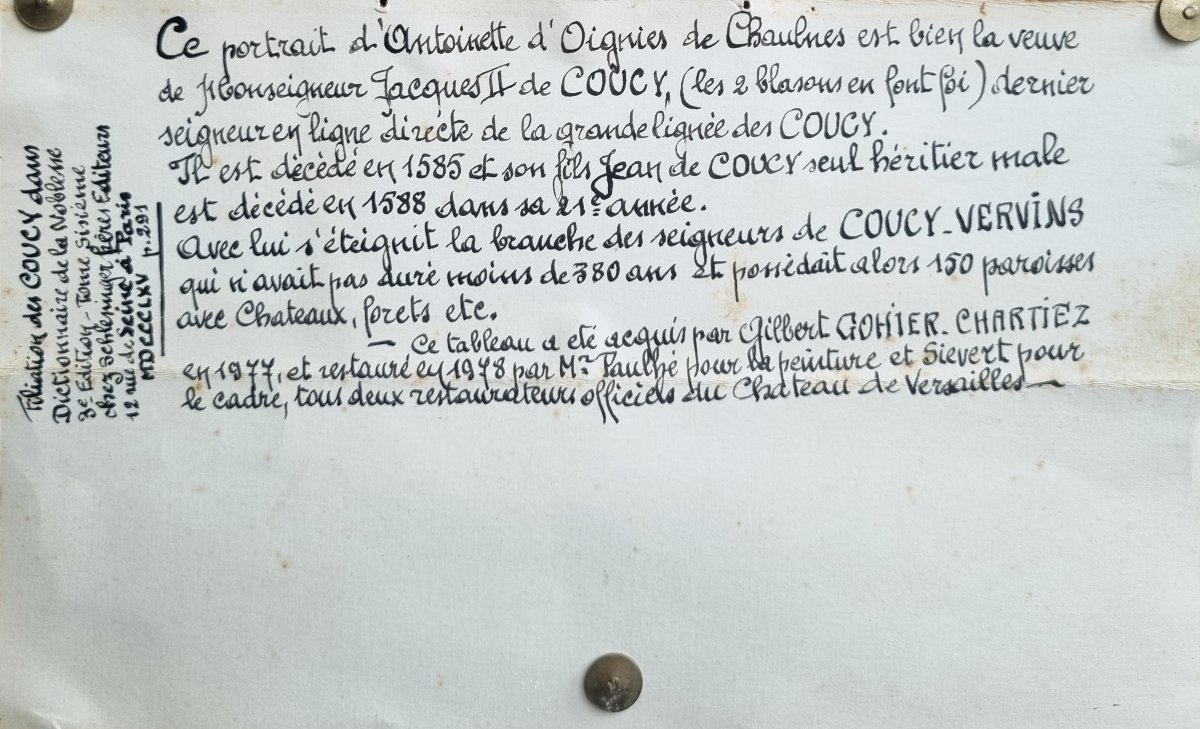 Ce portrait d'Antoinette d'Oignies de Chaulnes est bien la veuve
de Monseigneur Jacques II de COUCY, (les 2 blasons en font foi) dernier
seigneur en ligne directe de la grande lignée des COUCY.
Il est décèdé en 1585 et son fils Jean de COUCY seul héritier male
est décédé en 1588 dans sa 21e année.
Avec lui s'éteignit la branche des seigneurs de COUCY-VERVINS
qui n'avait pas duré moins de 380 ans et possèdait alors 150 paroisses
avec Chateaux, forets etc.
— Ce tableau a eté acquis par Gilbert GOHIER-CHARTIEZ
en 1977, et restauré en 1978 par Mr Paulhé pour la peinture et Sievert pour
le cadre, tous deux restaurateurs officiels du Chateau de Versailles —
Filiation des COUCY dans
Dictionnaire de la Noblesse
3e Edition - Tome Sixième
chez Schlesinger frères Editeurs
12 rue de Seine à Paris
MDCCCLXV p. 291